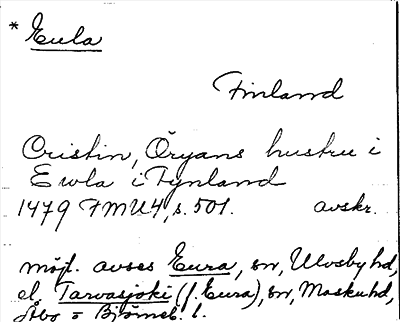 * Eula
Finland
Cristin, Öryans hustru i
Ewla i Fynland
1479 FMU4, s. 501. avskr.
möjl. avses Eura, sn, Ulvsby hd,
el. Tarvasjoki (f. Eura), sn, Maskuhd,
Åbo o Björneb. l.